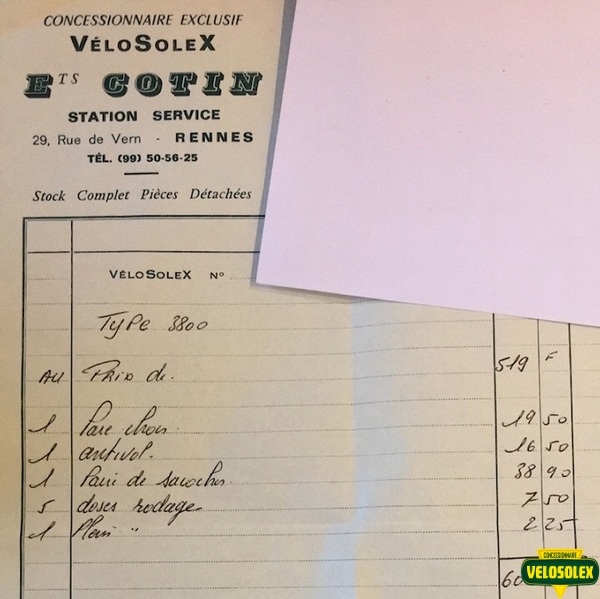 CONCESSIONNAIRE EXCLUSIF
VÉLOSOLEX
ETS COTIN
STATION SERVICE
29, Rue de Vern - RENNES
TÉL. (99) 50-56-25
Stock Complet Pièces Détachées
VÉLOSOLEX N°
Type 3800
Au Prix de. 519 F
1 Pare chocs 19 50
1 antivol. 16 50
1 Paire de sacoches 38 90
5 doses rodage 7 50
1 Plein " 2 25
60
CONCESSIONNAIRE
VELOSOLEX